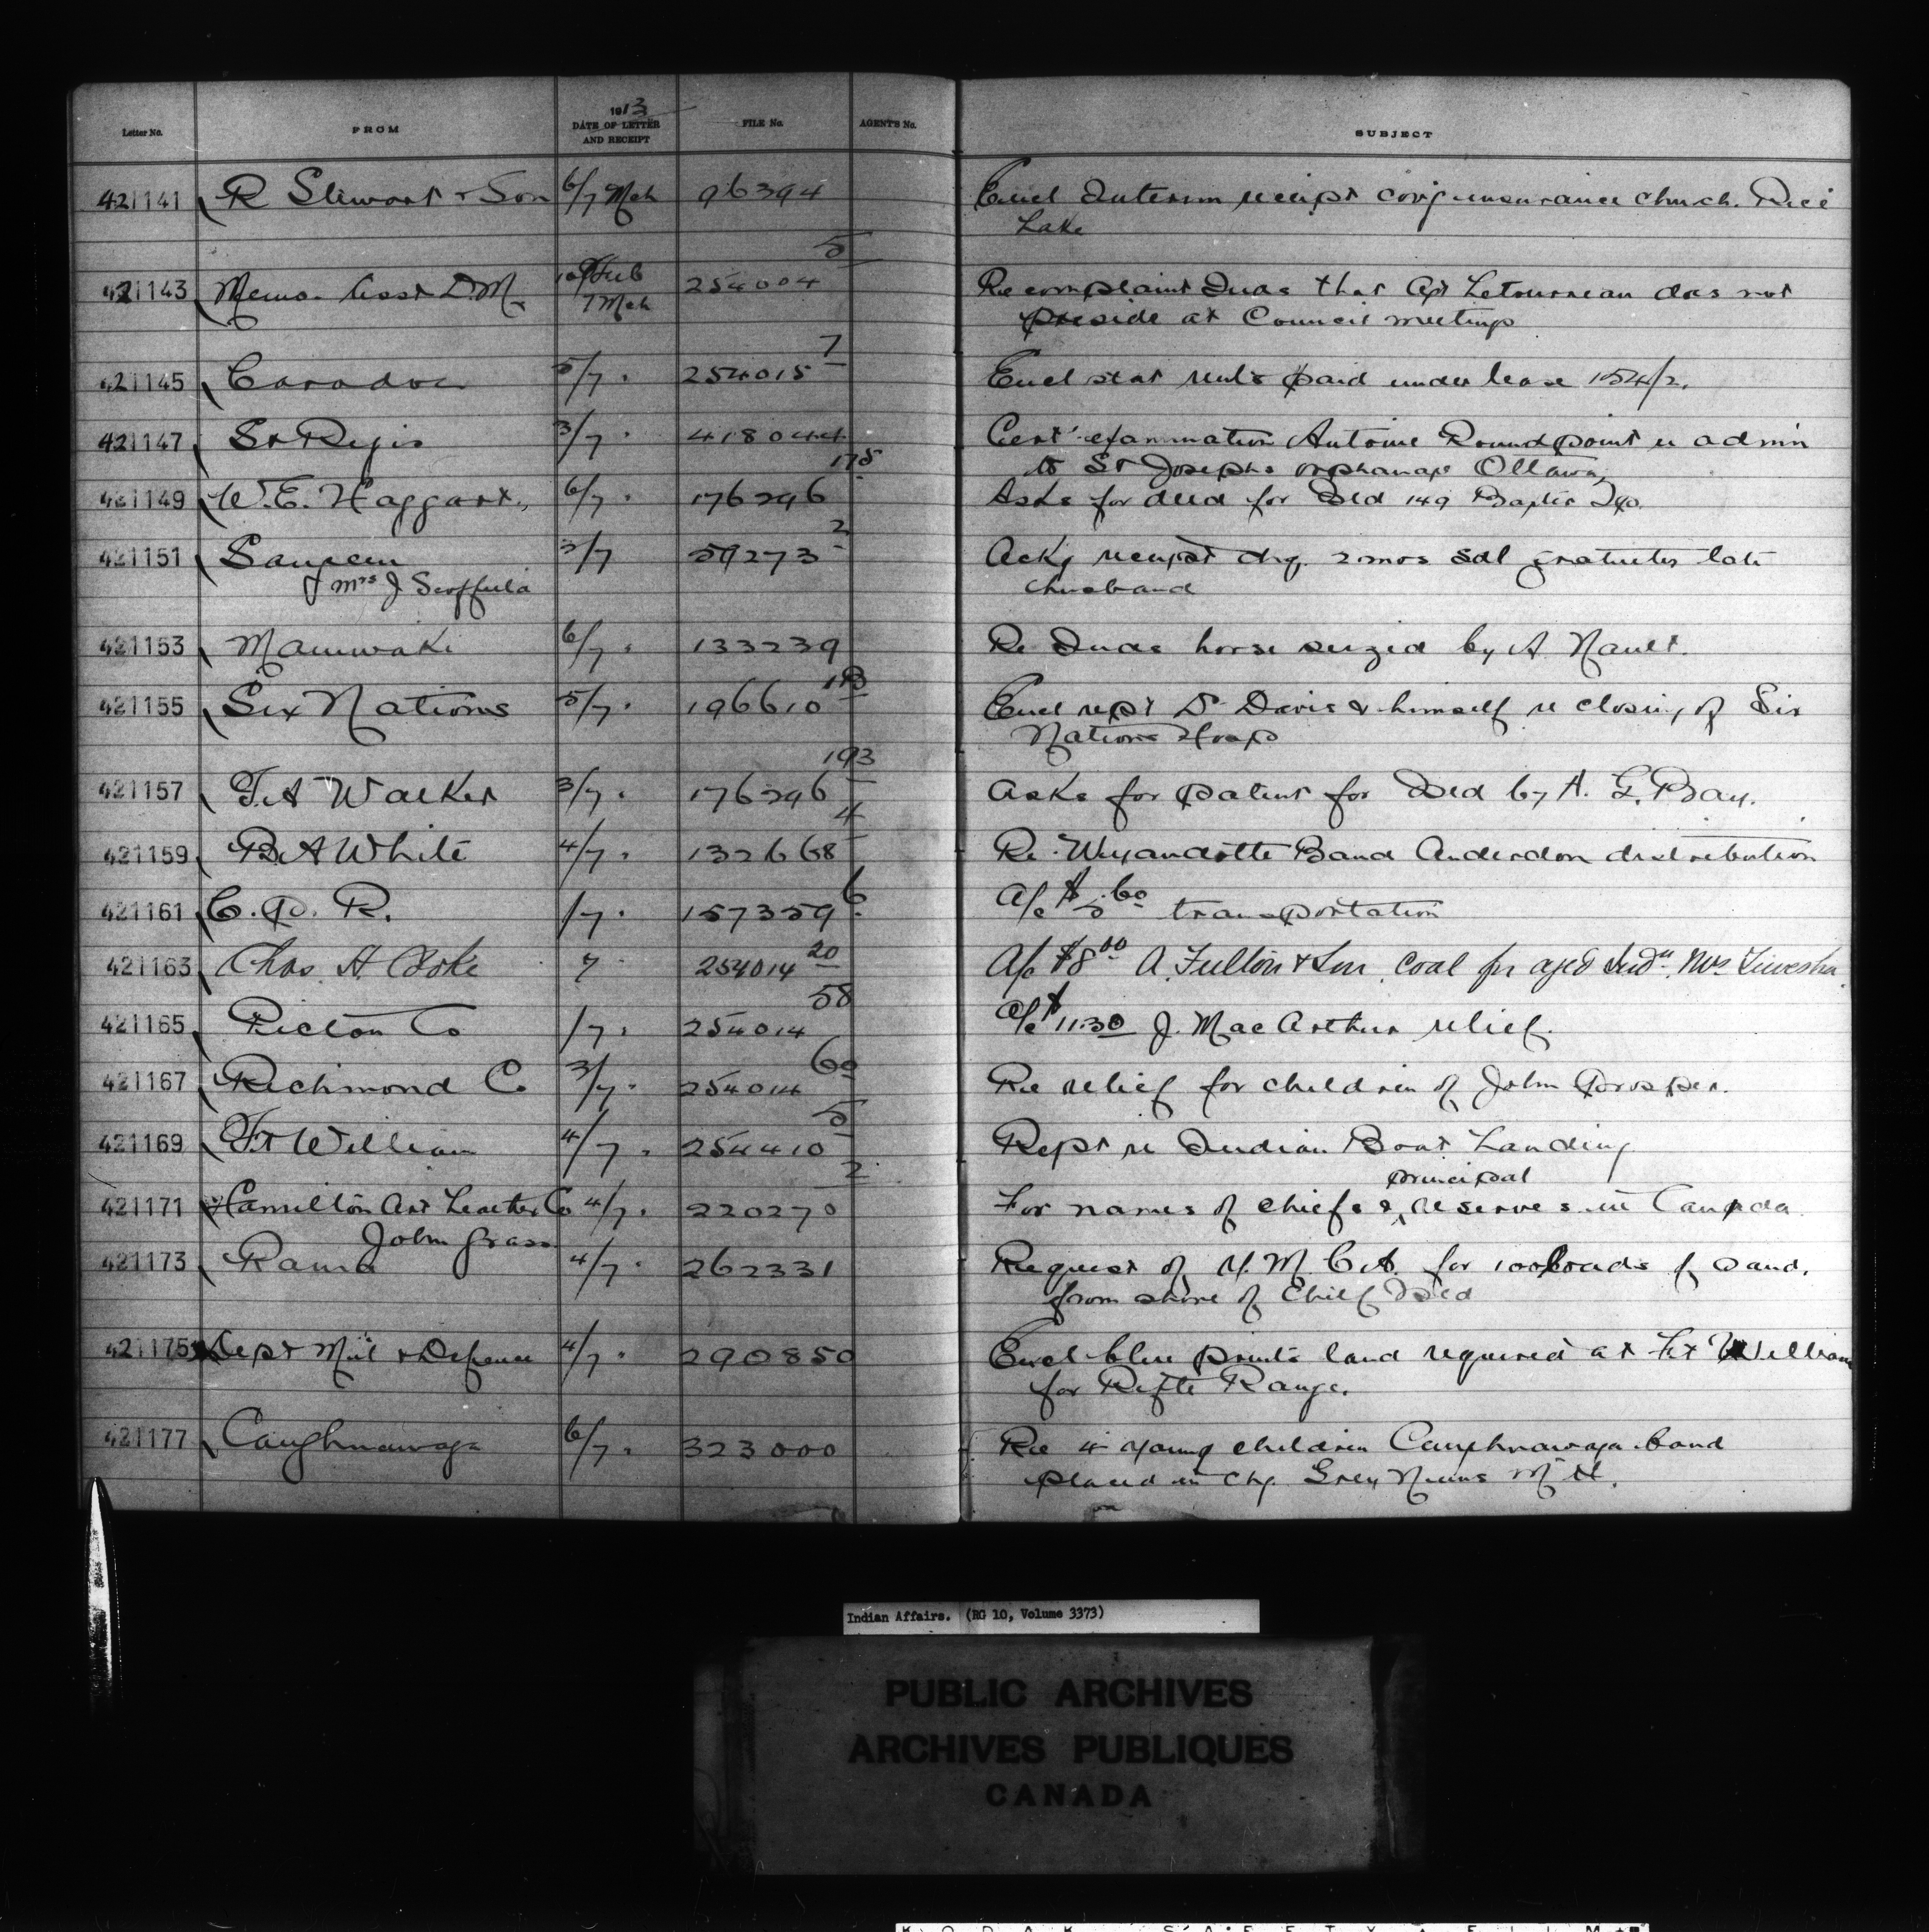 Letter No. FROM 1913 DATE OF LETTER AND RECEIPT FILE No. AGENT'S No. SUBJECT
421141 R Stewart & Son 6/7 Mch 96394 Encl Interim receipt covg insurance church. Rice
Lake
421143 Memo. Asst D.M. 10 Feb 7 Mch 254004 5 Re complaint Inds that Agt Letourneau does not
preside at Council meetings
421145 Caradoc 5/7 " 254015 7 Encl stat rents paid under lease 154/2.
421147 St Regis 3/7 " 418044 Cert examination Antoine Roundpoint re admn
to St Josephs orphanage Ottawa
421149 W.E. Haggart, 6/7 " 176296 175 Asks for deed for Isld 149 Baptis
421151 Saugeen 3/7 59273 2 Ackg receipt chq. 2 mos sal gratuity late
Mrs J Scoffield husband
421153 Maniwaki 6/7 " 133239 Re Inds horse seized by A Nault.
421155 Six Nations 5/7 " 196610 Encl rept Dr Davis & himself re closing of Six
Nations Hosp
421157 T.A Walker 3/7 " 176296 193 Asks for patent for Isld by A. G. Bay.
421159 B.A White 4/7 " 132668 4 Re Wyandotte Band Anderdon distribution
421161 C.P.R. /7 " 157359 6 A/c $5.60 transportation
421163 Chas. A. Cooke 7 " 254014 20 A/c $8.00 A. Fulton & Son, Coal for aged Indn. Mrs
421165 Pictou Co /7 " 254014 58 A/c $11.30 J. MacArthur relief.
421167 Richmond Co 3/7 " 254014 60 Re relief for children of John Prosper.
421169 Ft William 4/7 " 254410 5 Rept re Indian Boat Landing
421171 Hamilton Art Leather Co 4/7 " 220270 2 For names of chiefs & principal reserves in Canada
John Grass
421173 Rama 4/7 " 262331 Request of Y.M.C.A. for 100 loads of sand.
from shore of Chief Isld
421175 Dept Mil & Defence 4/7 " 290850 Encl blue prints land required at Ft William
for Rifle Range.
421177 Caughnawaga 6/7 " 323000 Re 4 young children Caughnawaga band
placed in chg. Grey Nuns
Indian Affairs. (RG 10, Volume 3373)
PUBLIC ARCHIVES
ARCHIVES PUBLIQUES
CANADA
KODAK SAFETY FILM